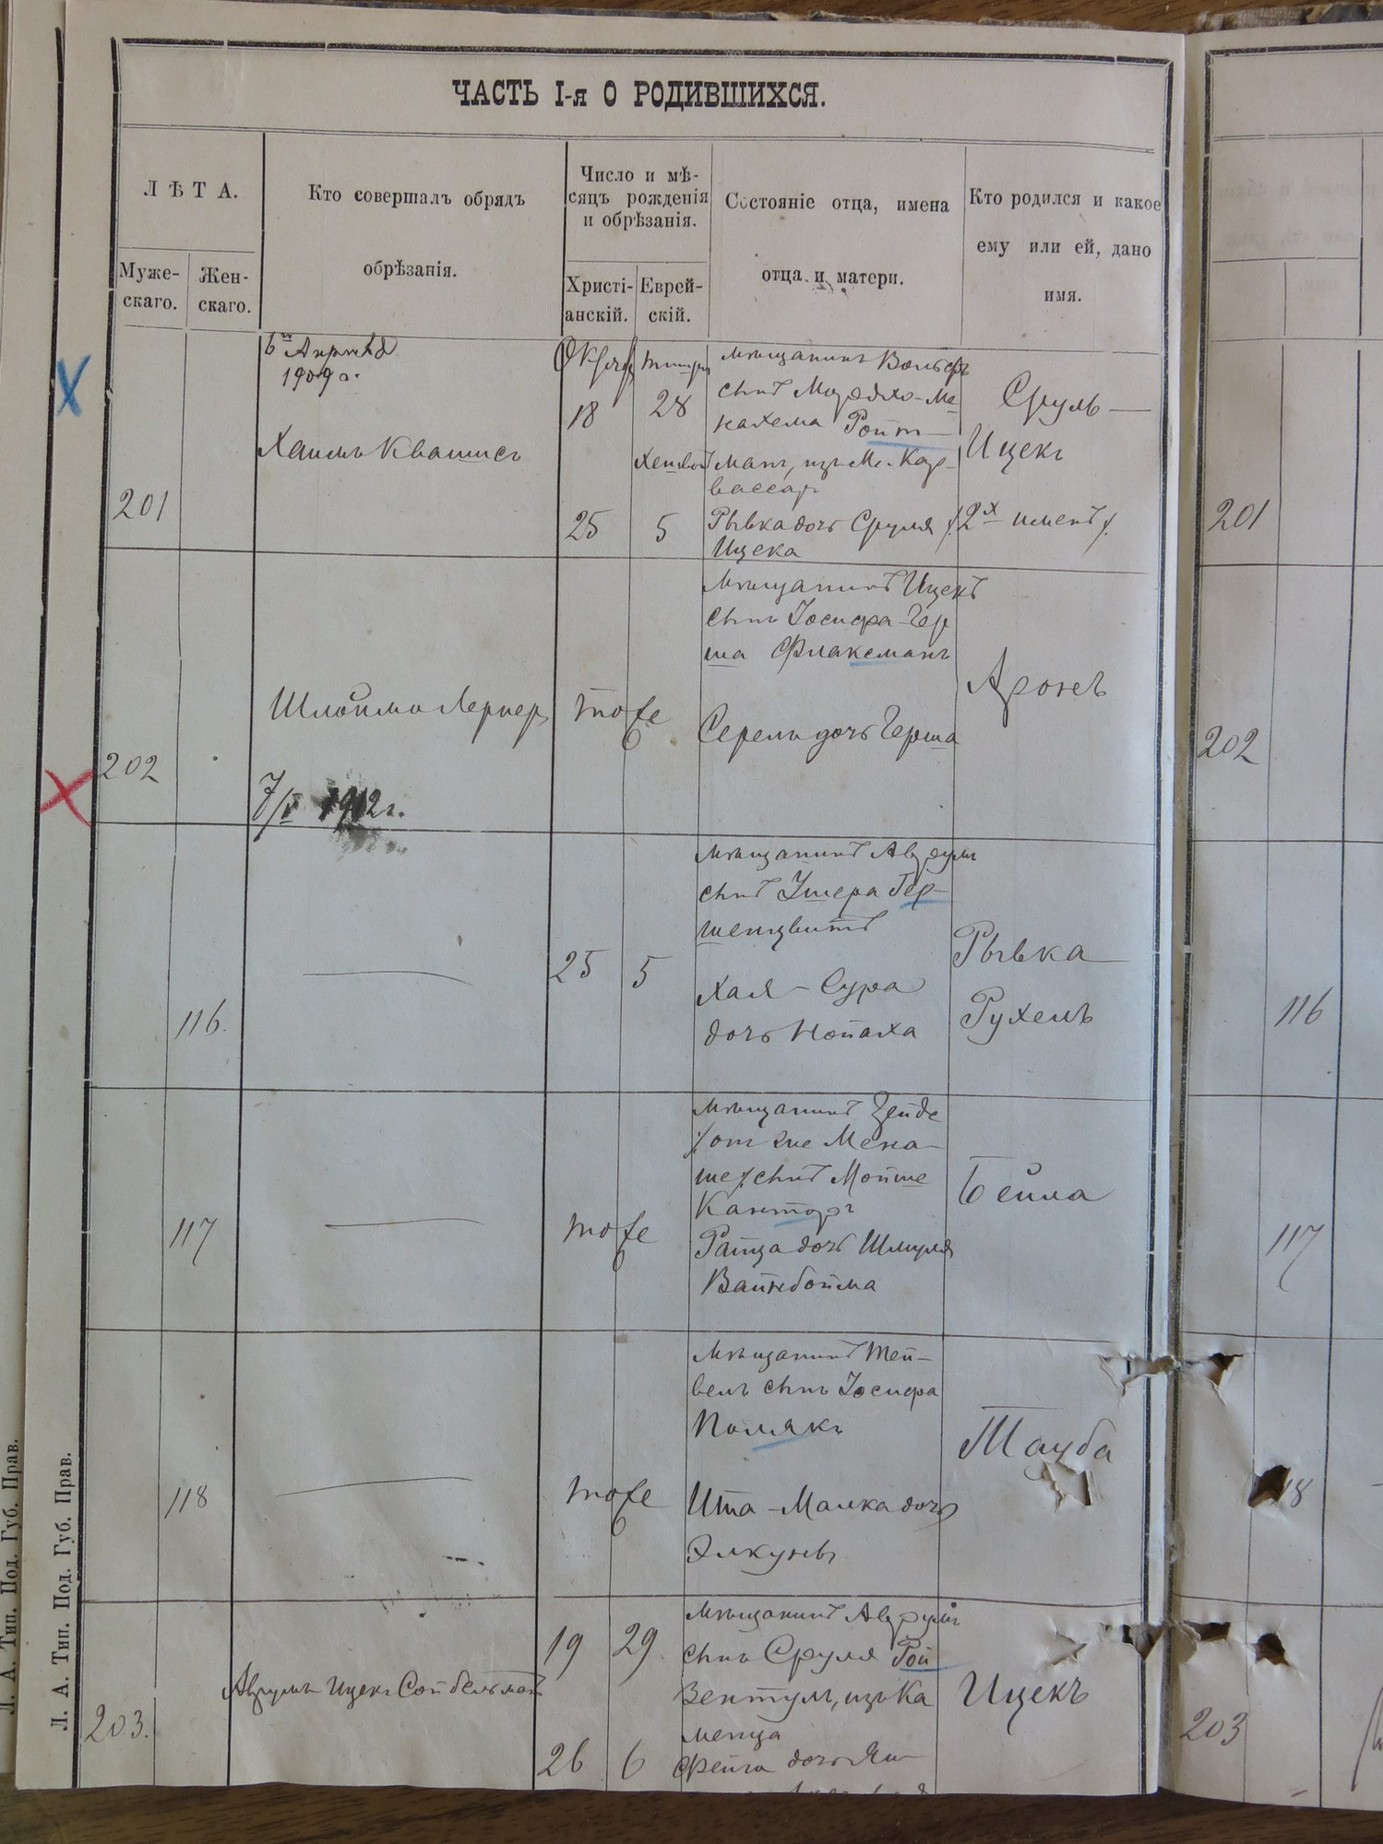 ЧАСТЬ I-я О РОДИВШИХСЯ.
ЛѢТА.
Муже-
скаго.
Жен-
скаго.
Кто совершалъ обрядъ
обрѣзанія.
Число и мѣ-
сяцъ рожденія
и обрѣзанія.
Христі-
анскій.
Еврей-
скій.
Состояніе отца, имена
отца и матери.
Кто родился и какое
ему или ей, дано
имя.
1909 г.
Хаимъ Квашисъ
201
18
28
25
5
мѣщанинъ Вольфъ
сынъ Мордхо-Ме-
нахема Ройт-
манъ, изъ м. Кар-
вассар
Рывка дочь Сруля
Ицека
Сруль —
Ицекъ
/2х именъ/
201
202
Шлойма Лернеръ
7/V 1912 г.
тоже
мѣщанинъ Ицекъ
сынъ Іосифа-Гер
ша Флаксманъ
Серель дочь Герша
Аронъ
202
116.
25
5
мѣщанинъ Аврумъ
сынъ Ушера Гер-
шенцвитъ
Хая-Сура
дочь Нойаха
Рывка
Рухель
116
117
тоже
мѣщанинъ Зейде
/онъ же Мена-
ше/ сынъ Мойше
Канторъ
дочь Шмуля
Вайнбойма
Бейла
117
118
тоже
мѣщанинъ Тей-
вель сынъ Іосифа
Полякъ
Ита-Малка дочь
Элкунъ
Тауба
18
203.
Аврумъ Ицекъ Сойбельман
19
29.
26
6
мѣщанинъ Аврумъ
сынъ Сруля Рой
зентулъ, изъ Ка
менца
Фейга дочь Ян-
Ицекъ
203
Л. А. Тип. Под. Губ. Прав.
Л. А. Тип. Под. Губ. Прав.